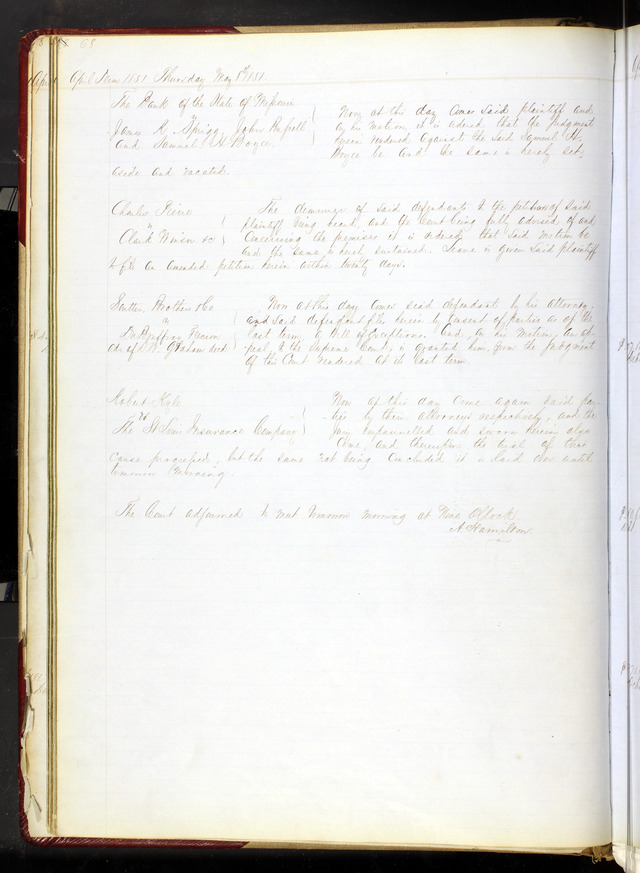 68
April Term 1851 Thursday May 8th 1851
The Bank of the State of Missouri
vs
James R. Spriggs, John
and Samuel H. Boyce
Now at this day comes said plaintiff and
by his motion, it is ordered that the judgment
herein rendered against the said Samuel H.
Boyce be and the same is hereby set
aside and vacated.
Charles
vs
Clark &c
The demurrer of said defendants to the petition of said
plaintiff being heard, and the Court being fully advised of and
concerning the premises it is ordered that said motion be
and the same is hereby sustained. Leave is given said plaintiff
to file an amended petition herein within twenty days.
Brother & Co
vs
adr of Graham decd
Now at this day comes said defendant by his attorney,
and said defendant files herein by consent of parties as of the
last term, a Bill of Exceptions. And, on his Motion, an ap-
peal to the Supreme Court, is granted him, from the judgment
of this Court rendered at its last term.
Robert Kyle
vs
The St Louis Insurance Company
Now at this day come again said par-
ties by their attorneys respectively, and the
jury empannelled and sworn herein also
come, and thereupon the trial of this
cause proceeded, but the same not being concluded it is laid over until
tomorrow morning.
The Court adjourned to meet tomorrow morning at Nine O'Clock
A. Hamilton